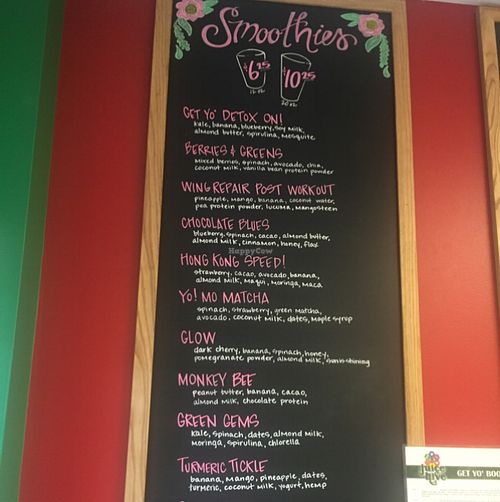 Smoothies
$6.25 $10.25
12 oz. 20 oz.
GET YO' DETOX ON!
kale, banana, blueberry, soy milk,
almond butter, spirulina, mesquite
BERRIES & GREENS
mixed berries, spinach, avocado, chia,
coconut milk, vanilla bean protein powder
WING REPAIR POST WORKOUT
pineapple, mango, banana, coconut water,
pea protein powder, lucuma, mangosteen
CHOCOLATE BLUES
blueberry, spinach, cacao, almond butter,
almond milk, cinnamon, honey, flax
HappyCow
HONG KONG SPEED!
strawberry, cacao, avocado, banana,
almond milk, maqui, moringa, maca
YO! MO MATCHA
spinach, strawberry, green matcha,
avocado, coconut milk, dates, maple syrup
GLOW
dark cherry, banana, spinach, honey,
pomegranate powder, almond milk,
MONKEY BEE
peanut butter, banana, cacao,
almond milk, chocolate protein
GREEN GEMS
kale, spinach, dates, almond milk,
moringa, spirulina, chlorella
TURMERIC TICKLE
banana, mango, pineapple, dates,
turmeric, coconut milk, yogurt, hemp
GET YO' BOO